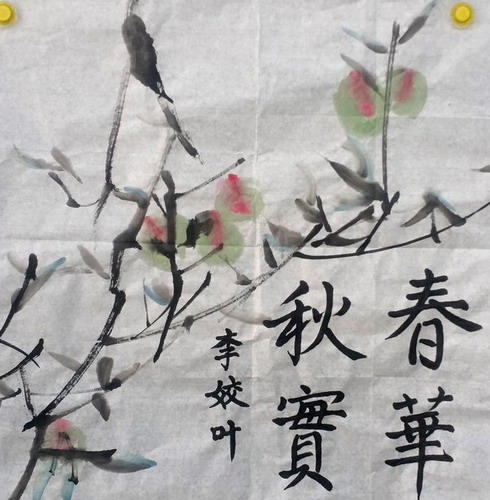 春華
秋實
李姣叶